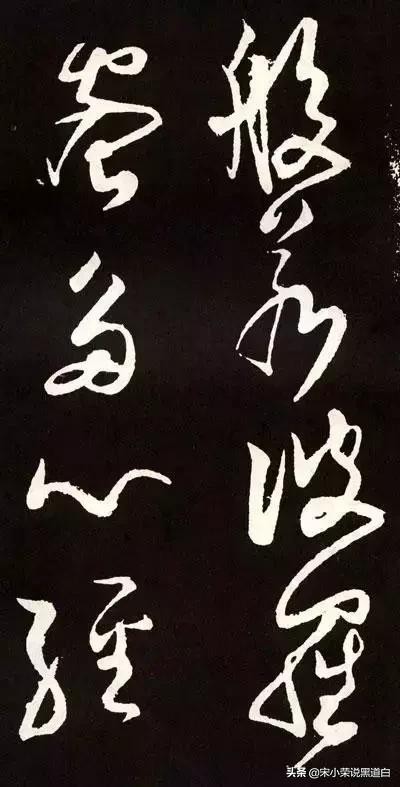 般若波羅
蜜多心經
头条 @宋小荣说黑道白